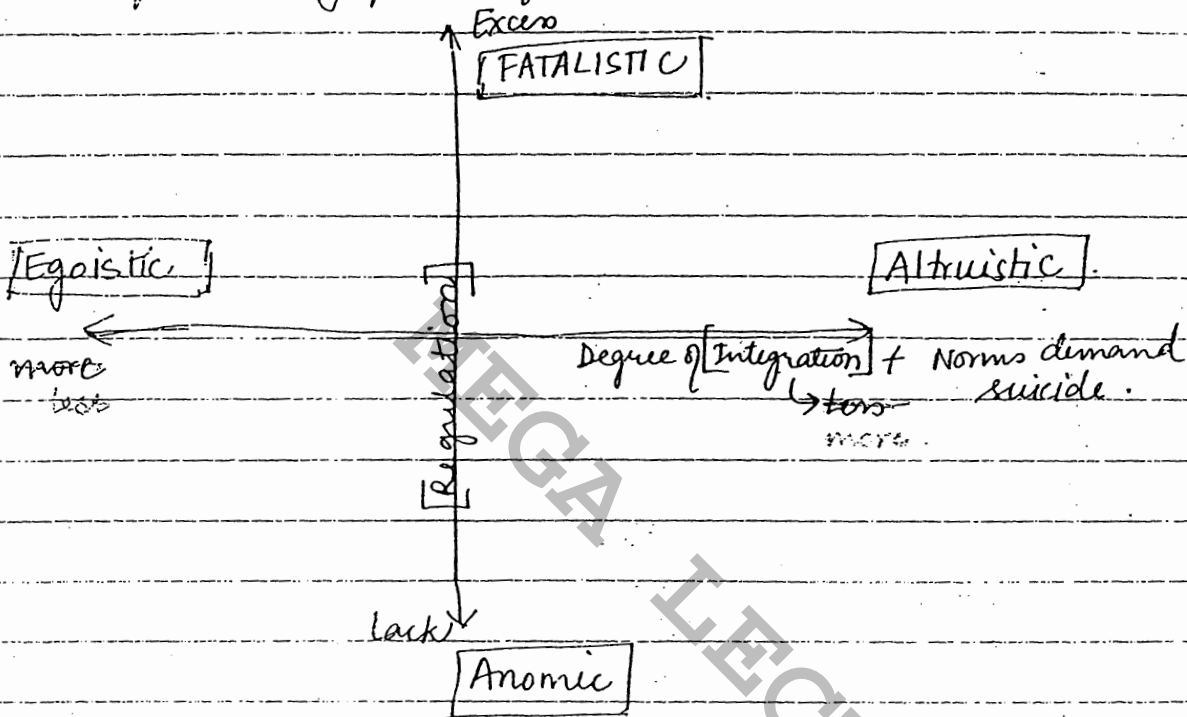 Excess
[FATALISTIC]
[Egoistic]
[Altruistic].
[Regulation]
Degree of [Integration] + Norms demand
suicide.
more
less
↳ less
more.
Lack
Anomic
MEGA LEC